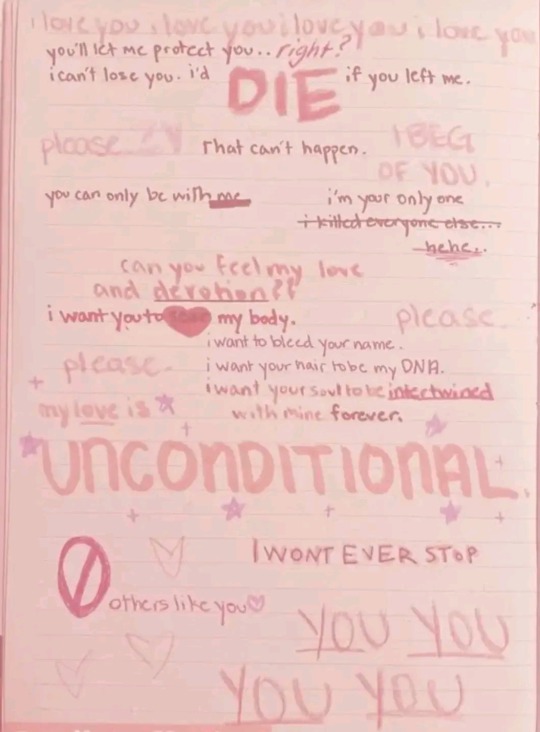 i love you i love you i love you i love you
you'll let me protect you.. right?
i can't lose you. i'd DIE if you left me.
please
That can't happen.
I BEG
OF YOU.
you can only be with me
i'm your only one
i killed everyone else...
hehe..
can you feel my love
and devotion??
i want you to my body.
please.
i want to bleed your name.
please.
i want your hair to be my DNA.
i want your soul to be intertwined
with mine forever.
my love is
UNCONDITIONAL.
I WONT EVER STOP
others like you
YOU YOU
YOU YOU